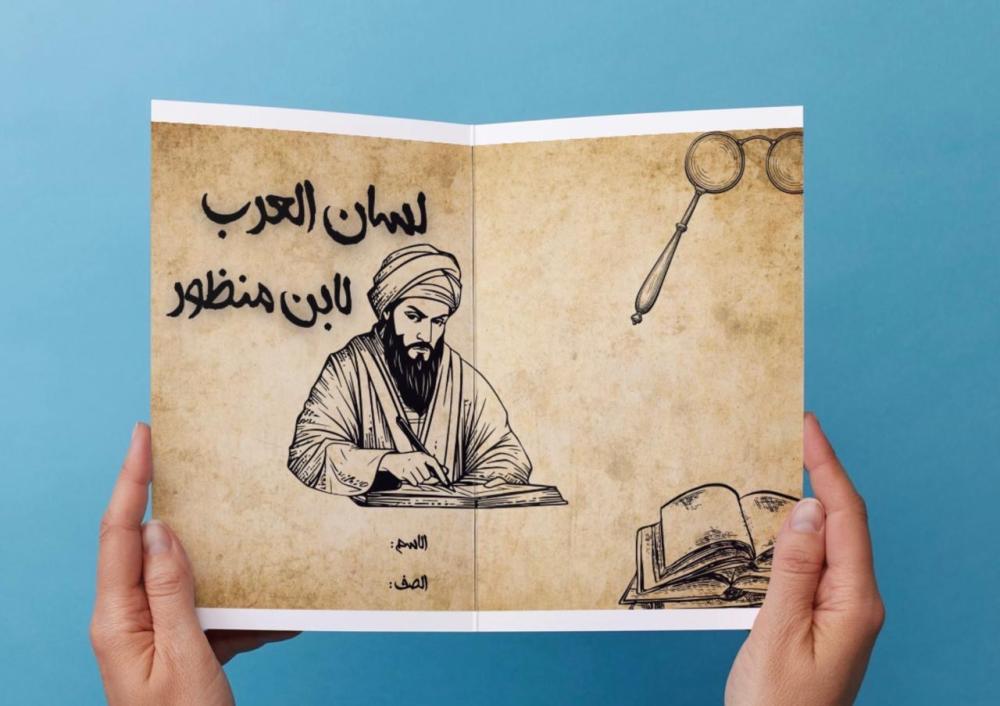 لسان العرب
لابن منظور
الاسم:
الصف: